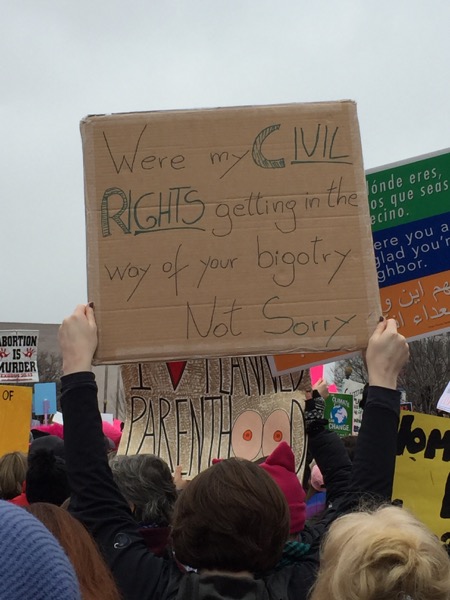 Were my CIVIL
RIGHTS getting in the
way of your bigotry
Not Sorry
ónde eres,
os que seas
ecino.
ere you a
glad you'r
ghbor.
ABORTION
IS
MURDER
OF
I PLANNED
PARENTHOOD
CLIMATE
CHANGE